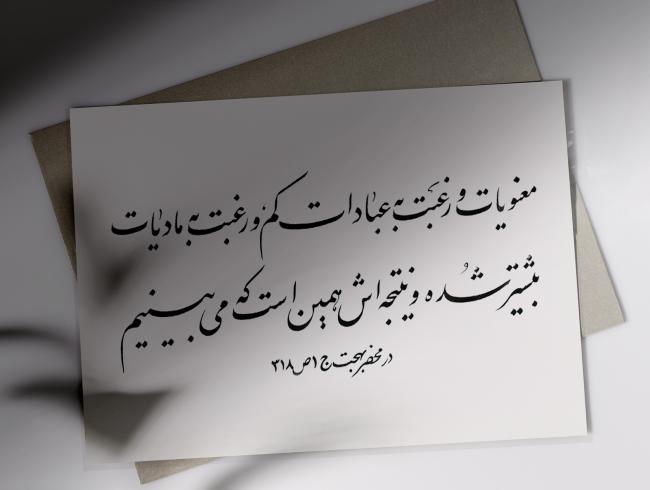 معنویات و رغبت به عبادات کم، و رغبت به مادیات
بیشتر شده و نتیجه اش همین است که می بینیم
در محضر بهجت ج ۱ ص ۳۱۸